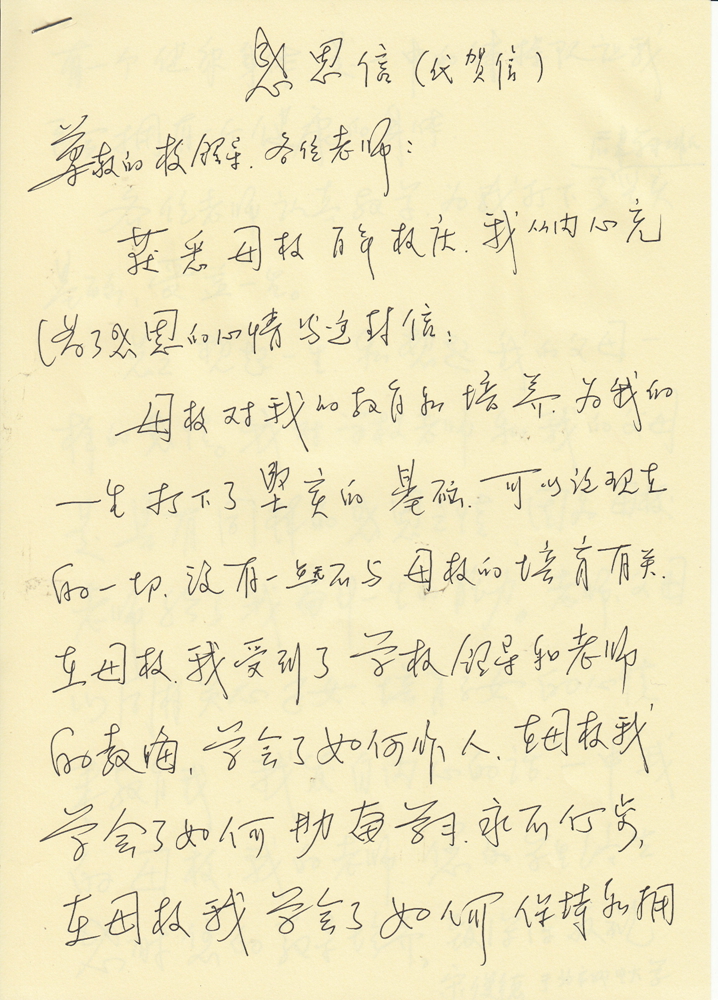 感恩信(代贺信)
尊敬的校领导、各位老师:
获悉母校百年校庆、我从内心充
满了感恩的心情写这封信:
母校对我的教育和培养、为我的
一生打下了坚实的基础、可以说现在
的一切、没有一点不与母校的培育有关、
在母校、我受到了学校领导和老师
的教诲、学会了如何作人、在母校我
学会了如何勤奋学习、永不停步、
在母校我学会了如何保持和拥